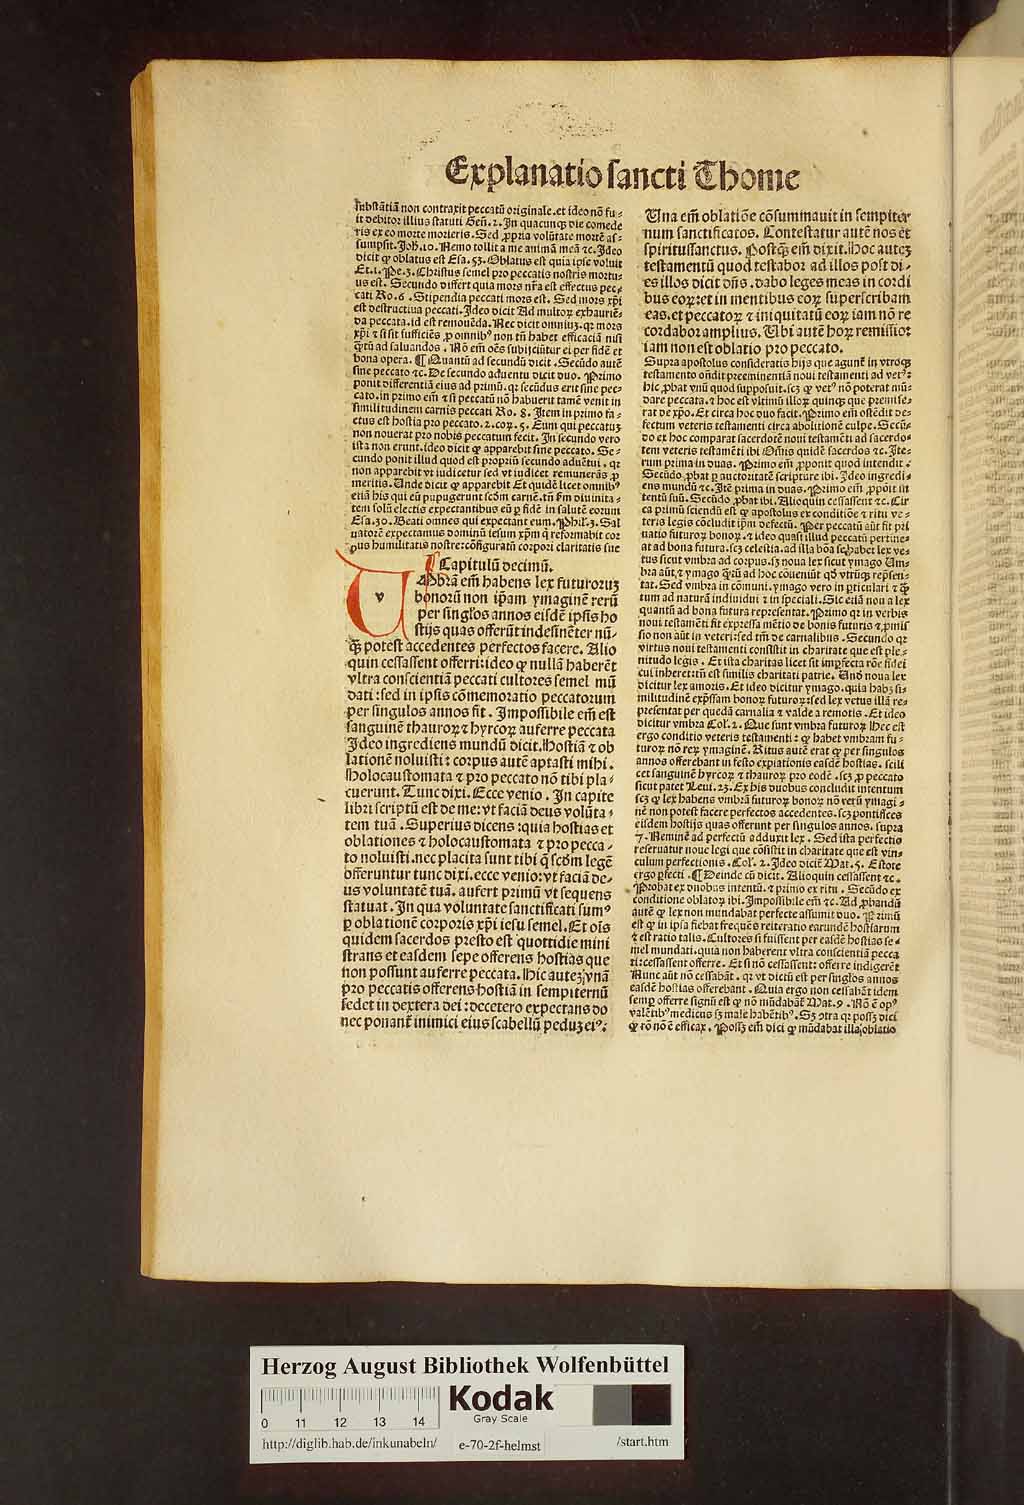 Explanatio sancti Thome
substātiā non contraxit peccatū originale. et ideo nō fu-
it debitor illius statuti Geñ. 2. In quacunqꝫ die comede
ris ex eo morte morieris. Sed ꝓpria volūtate mortē as-
sumpsit. Joh. 10. Nemo tollit a me animā meā ⁊c. Ideo
dicit ꝙ oblatus est Esa. 53. Oblatus est quia ipse voluit
Et. 1. Pe. 3. Christus semel pro peccatis nostris mortu-
us est. Secundo differt quia mors nr̄a est effectus pec-
cati Ro. 6. Stipendia peccati mors est. Sed mors xp̄i
est destructiua peccati. Ideo dicit Ad multoꝝ exhauriē-
da peccata. id est remouēda. Nec dicit omniuꝫ. qꝛ mors
xp̄i ⁊ si sit sufficiēs ꝓ omnibꝰ non tn̄ habet efficaciā nisi
q̄ꝫtū ad saluandos. Nō em̄ oēs subijciūtur ei per fidē et
bona opera. ¶ Quantū ad secundū dicit. Secūdo autē
sine peccato ⁊c. De secundo aduentu dicit duo. Primo
ponit differentiā eius ad primū. qꝛ secūdus erit sine pec-
cato. in primo em̄ ⁊ si peccatū nō habuerit tamē venit in
similitudinem carnis peccati Ro. 8. Item in primo fa-
ctus est hostia pro peccato. 2. coꝝ. 5. Eum qui peccatuꝫ
non nouerat pro nobis peccatum fecit. In secundo vero
ista non erunt. ideo dicit ꝙ apparebit sine peccato. Se-
cundo ponit illud quod est propriū secundo aduētui. qꝛ
non apparebit vt iudicetur sed vt iudicet remunerās ꝓ
meritis. Unde dicit ꝙ apparebit Et quidē licet omnibꝰ
etiā his qui eū pupugerunt scd̄m carnē. tn̄ scd̄m diuinita-
tem solū electis expectantibus eū ꝑ fidē in salutē eorum
Esa. 30. Beati omnes qui expectant eum. Phil. 3. Sal
uatorē expectamus dominū iesum xp̄m q̇ reformabit cor
pus humilitatis nostre: cōfiguratū corpori claritatis sue
¶ Capitulū decimū.
Umbrā em̄ habens lex futuroruꝫ
bonorū non ip̄am ymaginē rerū
per singl̓os annos eisdē ipsis ho
stijs quas offerūt indesinēter nū-
q̄ꝫ potest accedentes perfectos facere. Alio
quin cessassent offerri: ideo ꝙ nullā haberēt
vltra conscientiā peccati cultores semel mū
dati: sed in ipsis cōmemoratio peccatorum
per singulos annos fit. Impossibile em̄ est
sanguinē thauroꝝ ⁊ hyrcoꝝ auferre peccata
Ideo ingrediens mundū dicit. Hostiā ⁊ ob
lationē noluisti: corpus autē aptasti mihi.
Holocaustomata ⁊ pro peccato nō tibi pla-
cuerunt. Tunc dixi. Ecce venio. In capite
libri scriptū est de me: vt faciā deus volūta-
tem tuā. Superius dicens: quia hostias et
oblationes ⁊ holocaustomata ⁊ pro pecca-
to noluisti. nec placita sunt tibi q̄ scd̄m legē
offeruntur tunc dixi. ecce venio: vt faciā de-
us voluntatē tuā. aufert primū vt sequens
statuat. In qua voluntate sanctificati sumꝰ
ꝑ oblationē corporis xp̄i iesu semel. Et oīs
quidem sacerdos presto est quottidie mini
strans et easdem sepe offerens hostias que
non possunt auferre peccata. Hic auteꝫ vnā
pro peccatis offerens hostiā in sempiternū
sedet in dextera dei: decetero expectans do
nec ponant̄ inimici eius scabellū peduꝫ eiꝰ:
Una em̄ oblatiōe cōsummauit in sempiter
num sanctificatos. Contestatur autē nos et
spiritussanctus. Postq̄ꝫ em̄ dixit. Hoc auteꝫ
testamentū quod testabor ad illos post di-
es illos dicit dn̄s. dabo leges meas in cordi
bus eoꝝ: et in mentibus eoꝝ superscribam
eas. et peccatoꝝ ⁊ iniquitatū eoꝝ iam nō re
cordabor amplius. Ubi autē hoꝝ remissio:
iam non est oblatio pro peccato.
Supra apostolus consideratis hijs que agunt̄ in vtroqꝫ
testamento on̄dit preeminentiā noui testamenti ad vetꝰ:
hic ꝓbat vnū quod supposuit. scꝫ ꝙ vetꝰ nō poterat mū-
dare peccata. ⁊ hoc est vltimū illoꝝ quinqꝫ que premise-
rat de xp̄o. Et circa hoc duo facit. Primo em̄ ostēdit de-
fectum veteris testamenti circa abolitionē culpe. Secū-
do ex hoc comparat sacerdotē noui testamēti ad sacerdo-
tem veteris testamēti ibi Om̄is quidē sacerdos ⁊c. Ite-
rum prima in duas. Primo em̄ ꝓponit quod intendit.
Secūdo ꝓbat ꝑ auctoritatē scripture ibi. Ideo ingredi-
ens mundū ⁊c. Itē prima in duas. Primo em̄ ꝓpōit in
tentū suū. Secūdo ꝓbat ibi. Alioquin cessassent ⁊c. Cir
ca primū sciendū est ꝙ apostolus ex conditiōe ⁊ ritu ve-
teris legis cōcludit ip̄m defectū. Per peccatū aūt fit pri
uatio futuroꝝ bonoꝝ. ⁊ ideo quasi illud peccatū pertine-
at ad bona futura. scꝫ celestia. ad illa bōa se habet lex ve-
tus sicut vmbra ad corpus. sꝫ noua lex sicut ymago Um-
bra aūt. ⁊ ymago q̄ꝫtū ad hoc cōueniūt qꝙ vtrūqꝫ rep̄sen-
tat. Sed vmbra in cōmuni. ymago vero in ꝑticulari ⁊ q̄ꝫ
tum ad naturā indiuidui ⁊ in speciali. Sic etiā noua lex
quantū ad bona futura representat. Primo qꝛ in verbis
noui testamēti fit expressa mētio de bonis futuris ⁊ ꝓmis
sio non aūt in veteri: sed tm̄ de carnalibus. Secundo qꝛ
virtus noui testamenti consistit in charitate que est ple-
nitudo legis. Et ista charitas licet sit imꝑfecta rōe fidei
cui inheret: tn̄ est similis charitati patrie. Un̄ noua lex
dicitur lex amoris. Et ideo dicitur ymago. quia habꝫ si-
militudinē exp̄ssam bonoꝝ futuroꝝ: sed lex vetus illā re-
presentat per quedā carnalia ⁊ valde a remotis. Et ideo
dicitur vmbra Col. 2. Que sunt vmbra futuroꝝ Hec est
ergo conditio veteris testamenti: ꝙ habet vmbram fu-
turoꝝ nō reꝝ ymaginē. Ritus autē erat ꝙ per singulos
annos offerebant in festo expiationis easdē hostias. scili
cet sanguinē hyrcoꝝ ⁊ thauroꝝ pro eodē. scꝫ ꝓ peccato
sicut patet Leui. 23. Ex his duobus concludit intentum
scꝫ ꝙ lex habens vmbrā futuroꝝ bonoꝝ nō verū ymagi-
nē non potest facere perfectos accedentes. scꝫ pontifices
eisdem hostijs quas offerunt per singulos annos. supra
7. Neminē ad perfectū adduxit lex. Sed ista perfectio
reseruatur noue legi que cōsistit in charitate que est vin-
culum perfectionis. Col. 2. Ideo dicit̄ Mat. 5. Estote
ergo ꝑfecti. ¶ Deinde cū dicit. Alioquin cessassent ⁊c.
Probat ex duobus intentū. ⁊ primo ex ritu. Secūdo ex
conditione oblatoꝝ ibi. Impossibile em̄ ⁊c. Ad ꝓbandū
autē ꝙ lex non mundabat perfecte assumit duo. Primū
est ꝙ in ipsa fiebat frequēs reiteratio earundē hostiarum
⁊ est ratio talis. Cultores si fuissent per easdē hostias se-
mel mundati. quia non haberent vltra conscientiā pecca
ti: cessassent offerre. Et si nō cessassent: offerre indigerēt
Nunc aūt nō cessabāt. qꝛ vt dictū est per singl̓os annos
easdē hostias offerebant. Quia ergo non cessabāt idem
semꝑ offerre signū est ꝙ nō mūdabāt̄ Mat. 9. Nō ē opꝰ
valētibꝰ medicus sꝫ male habētibꝰ. Sꝫ ↄtra qꝛ possꝫ dici
ꝙ rō nō ē efficax. Possꝫ em̄ dici ꝙ mūdabat illa oblatio
Herzog August Bibliothek Wolfenbüttel
0 11 12 13 14
Kodak
Gray Scale
http://diglib.hab.de/inkunabeln/ e-70-2f-helmst /start.htm